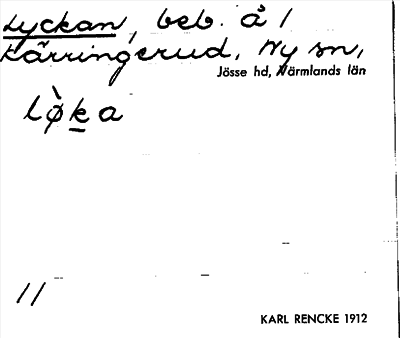 Lyckan, beb. å /
Kärringerud, Ny sn,
Jösse hd, Värmlands län
lø̀ḵa
//
KARL RENCKE 1912